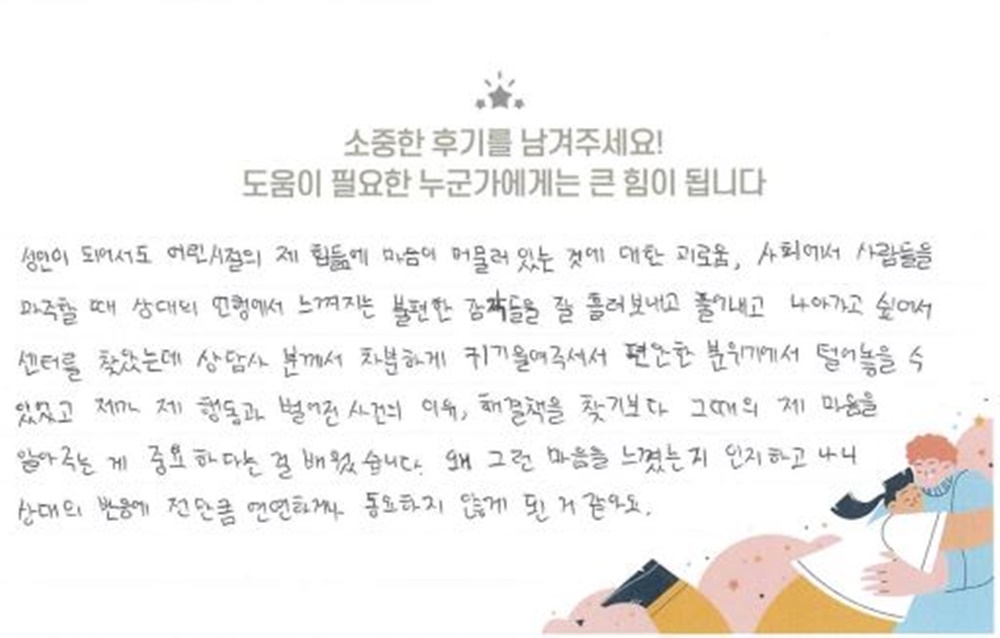 소중한 후기를 남겨주세요!
도움이 필요한 누군가에게는 큰 힘이 됩니다
성인이 되어서도 어린시절의 제 힘듦에 마음이 머물러 있는 것에 대한 괴로움, 사회에서 사람들을
마주할 때 상대의 언행에서 느껴지는 불편한 감각들을 잘 흘려보내고 풀어내고 나아가고 싶어서
센터를 찾았는데 상담사 분께서 차분하게 귀기울여주셔서 편안한 분위기에서 털어놓을 수
있었고 제가 제 행동과 벌어진 사건의 이유, 해결책을 찾기보다 그때의 제 마음을
알아주는 게 중요하다는 걸 배웠습니다. 왜 그런 마음을 느꼈는지 인지하고 나니
상대의 반응에 전만큼 연연하거나 동요하지 않게 된 거 같아요.